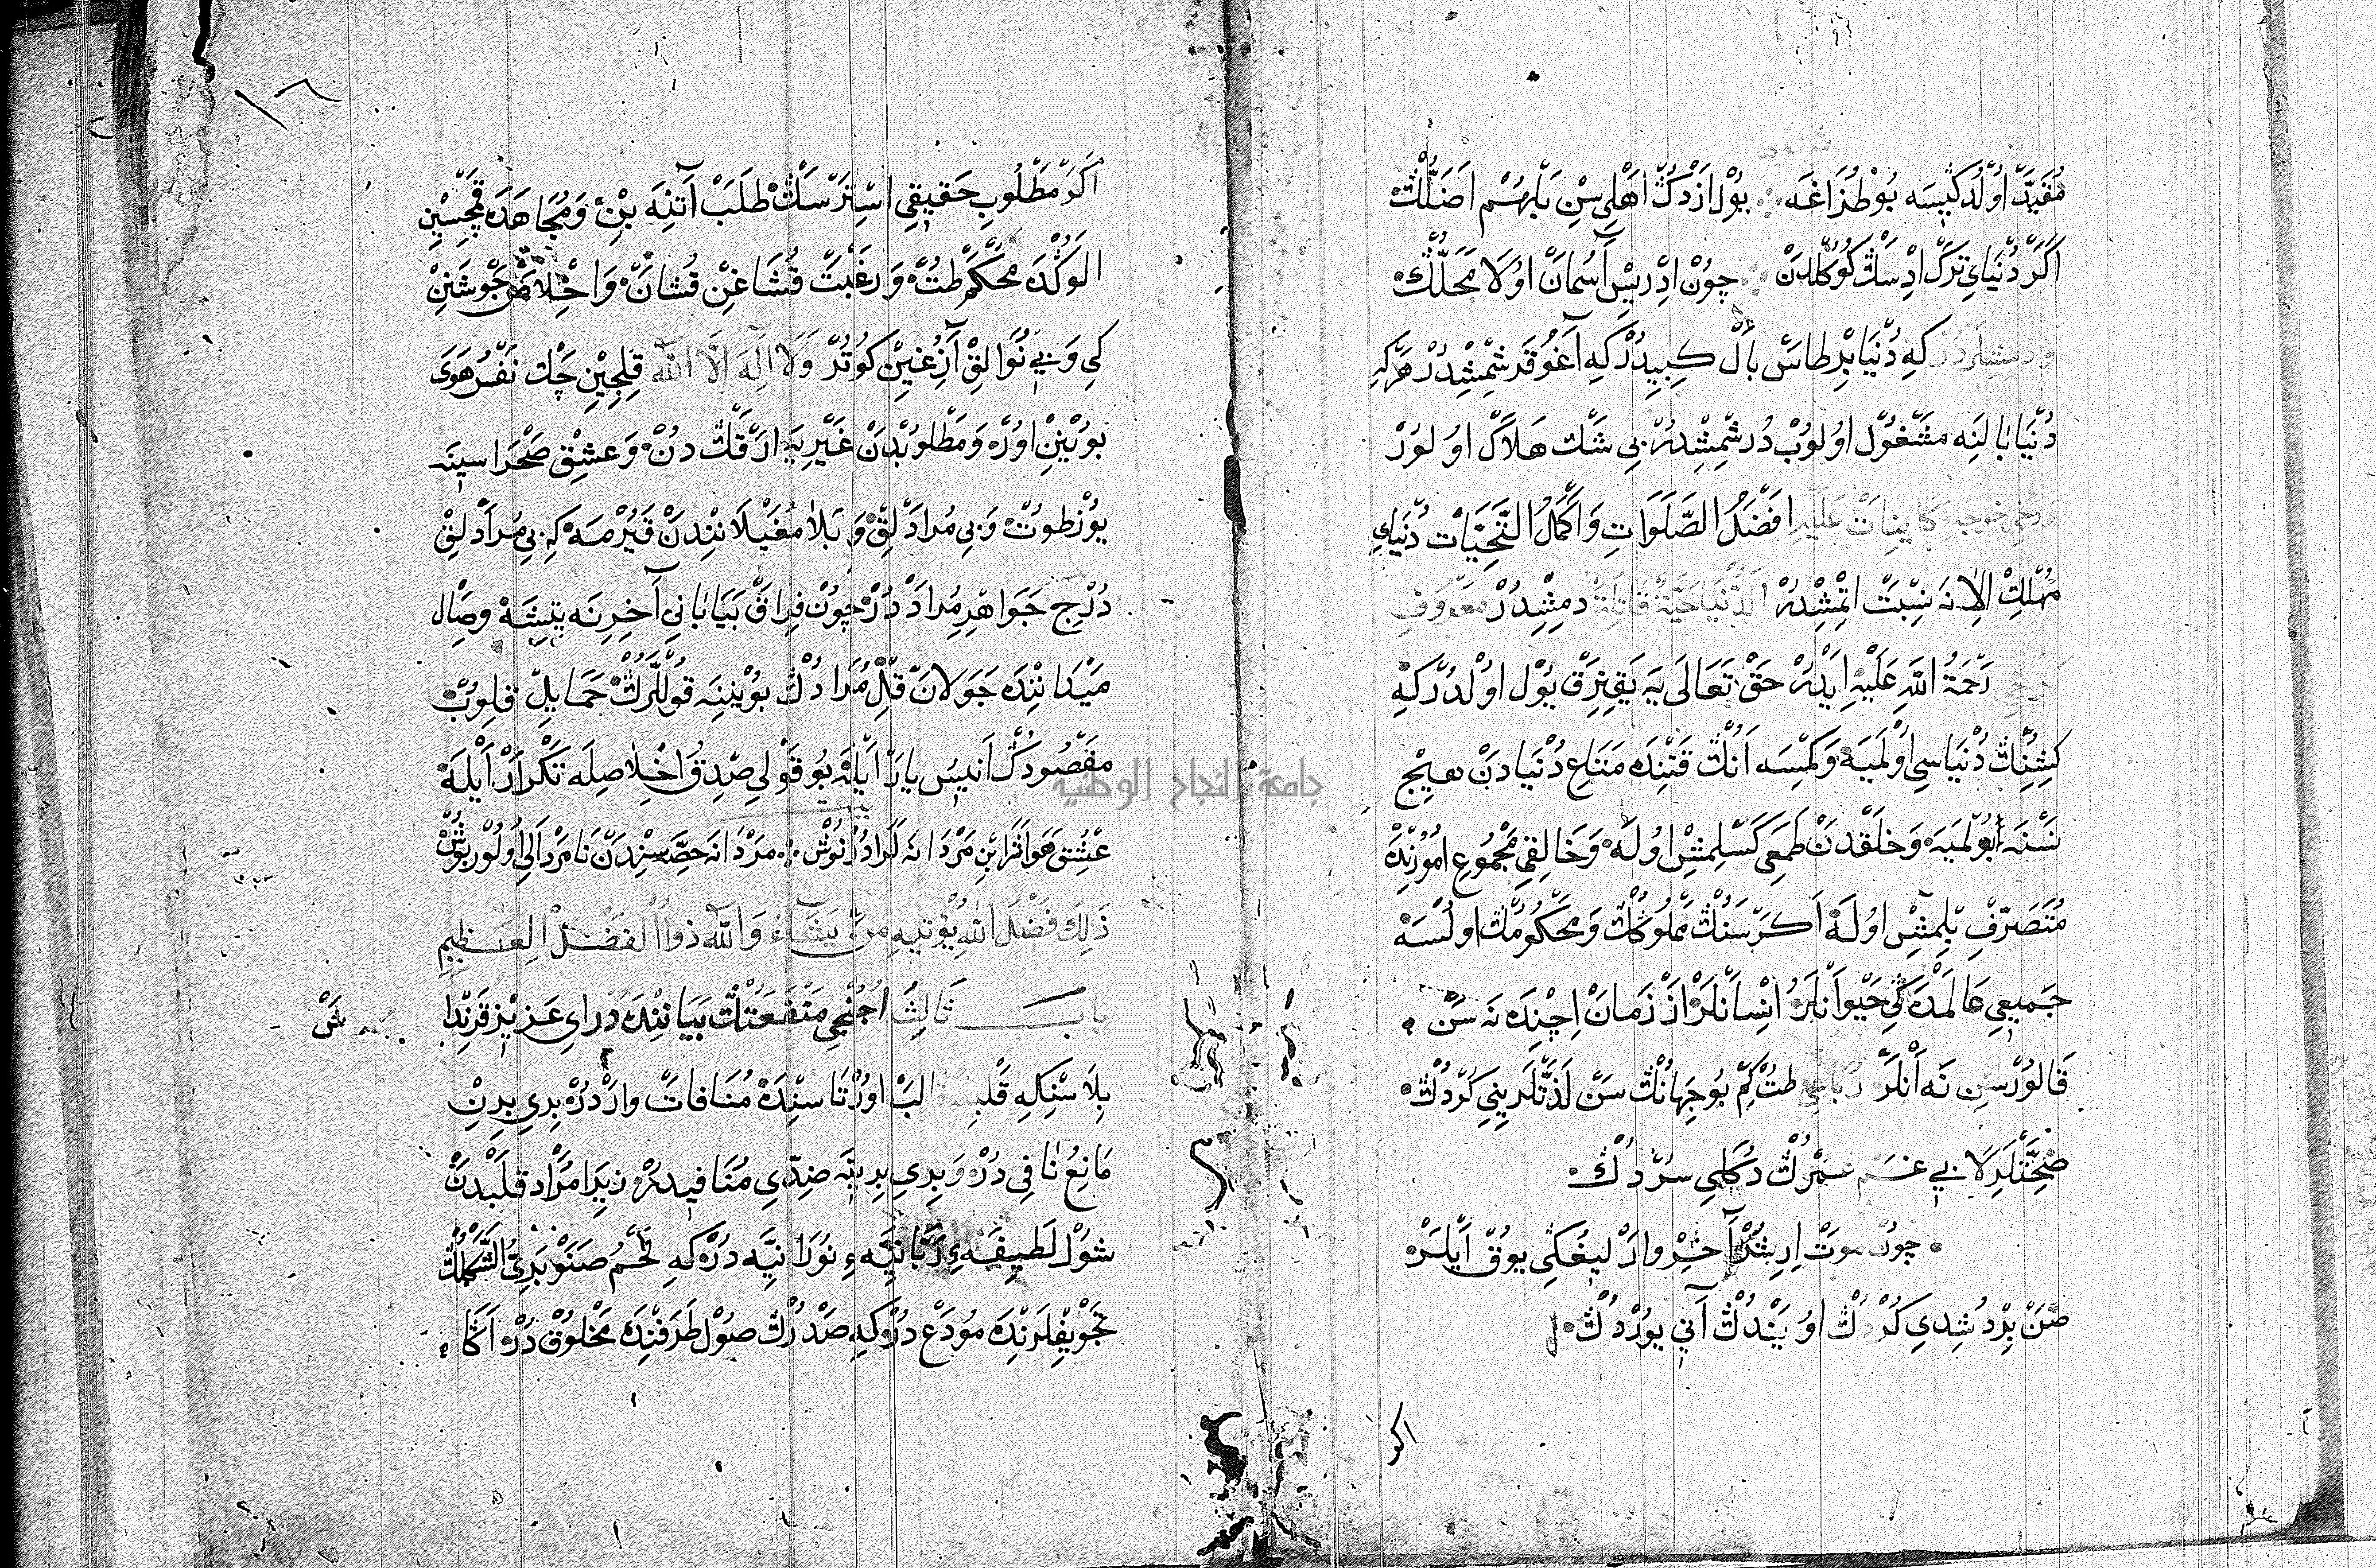 مُقَيَّدْ اُولْد كِيسَه بُوْ طُزَاغَه بُوْل اَزْدُكْ اَهْلِى سِنْ بَلْهُمْ اَضَلْسَڭْ
اَكَرْ دُنْيَايِ تَرْكْ اِدْسَڭْ كَوُڭُلْدَنْ چُونْ اِدْرِيسْ آسُمَانْ اوُلَا مَحَلُّڭْ
كِه دُنْيَا بِرْ طَاسْ بَالْ كِبِيدُرْ كِه آغُو قَرِشْمِشْدُرْ هَرْ كِه
دُنْيَا بَالِنَه مَشْغُولْ اوُلوُبْ دُرِشْمِشْدُرْ بِي شَكْ هَلَاكْ اوُلوُرْ
كَايِنَاتْ عَلَيْهِ اَفْضَلُ الصَّلَوَاتِ وَاَكْمَلُ التَّحِيَّاتْ دُنْيَايِ
مُهْلِكْ اِلَانَه نِسْبَتْ اِتْمِشْدُرْ اَلدُّنْيَا حَيَّةٌ قَاتِلَةٌ دِمِشْدُرْ مَعْرُوفِ
كَرْخِي رَحْمَةُ اللّٰهِ عَلَيْهِ اَيْدُرْ حَقْ تَعَالَى يَه يَقِنْرَقْ يُوْل اوُلْدُرْ كِه
كِشِنِڭْ دُنْيَاسِي اوُلْمَيَه وَكِمْسَه اَنُڭْ قَتِنْدَه مَتَاعِ دُنْيَادَنْ هِيچْ
نَسْنَه بُولْمَيَه وَخَلْقْدَنْ طَمَعِى كَسِلْمِشْ اوُلَه وَخَالِقِى مَجْمُوعِ اُمُورِنْدَه
مُتَصَرِّفْ بِلْمِشْ اوُلَه اَكَرْ سَنُڭْ مَمْلُوكُڭْ وَمَحْكُومُڭْ اوُلْسَه
جَمِيعِ عَالَمْدَكِي حَيْوَانْلَرُ اِنْسَانْلَرْ اَزْ زَمَانْ اِچِنْدَه نَه سَنْ
قَالوُرْسِنْ نَه اَنْلَرْ رُبَاعِي طُتْ كِمْ بُو جِهَانُڭْ سَنْ لَذَّتْلَرِينِي كَرْدُڭْ
صِحَّتْلَرِلَا بِي غَمْ عُمْرُڭْ دُكَلِي سُرْدُڭْ
چُونْ مَوْتْ اِرِشُرْ آخِرْ وَارْلِيغُكِى يُوقْ اَيْلَرْ
صَنْ بِرْ دُشِدِي كَرْدُڭْ اوُيَنْدُڭْ آنِي يُورْدُڭْ
اكر
١٦
اَكَرْ مَطْلُوبِ حَقِيقِي اِسْتَرْسَڭْ طَلَبْ آتِنَه بِنْ وَمُجَاهَدَه قَمْچِسِيْنِ
اَلُوڭْدَه مُحْكَمْ طُتْ وَرَغْبَتْ قُشَاغِنْ قُشَانْ وَاِخْلَاصْ جَوْشَنِنْ
كِي وَبِي نَوَالِقْ آزِغِيْنْ كُوتُرْ وَلَا اِلٰهَ اِلَّا اللّٰه قِلِجِيْنِ چَكْ نَفْسُ هَوَى
بُويْنِنْ اوُرْ وَمَطْلُوبْدَنْ غَيْرِيَه اَرْقَڭْ دُنْ وَعِشْقْ صَحْرَاسِينَه
يُوزْ طُوتْ وَبِي مُرَادْلِقْ وَبَلَا مُغَيْلَانِنْدَنْ قَيُرْمَه كِه بِي مُرَادْلِقْ
دُرْجِ جَوَاهِرِ مُرَادْدُرْ چُونْ فِرَاقْ بَيَابَانِي آخِرِنَه يِتِشَه وِصَالْ
مَيْدَانِنْدَه جَوَلَانْ قِلْ مُرَادُڭْ بُويْنِنَه قُوللَّرُڭْ حَمَايِلْ قِلوُبْ
مَقْصُودُڭْ اَنِيسُ يَارْ اَيْلَه بُو قَوْلِي صِدْقُ اِخْلَاصِلَه تَكْرَارْ اَيْلَه
ذٰلِكَ فَضْلُ اللّٰهِ يُؤْتِيهِ مَنْ يَشَاءُ وَاللّٰه ذُو الْفَضْلِ الْعَظِيمِ
بَابْ ثَالِثْ اُچُنْجِي مَنْفَعَتُڭْ بَيَانِنْدَه دُرْ اَيْ عَزِيزْ قَرِنْدَا
شْ
بِلَاسْنِكِه قَلْبِلَه قَالَبْ اوُرْتَاسِنْدَه مُنَافَاتْ وَارْدُرْ بِرِي بِرِنْ
مَانِعُ نَافِي دُرْ وَبِرِي بِرِينَه ضِدِّي مُنَافِيدُرْ زِيرَا مُرَادْ قَلْبْدَنْ
شُوْل لَطِيفَهءِ رَبَّانِيَّه ءِ نُورَانِيَّه دُرْ كِه لَحْمُ صَنَوْبَرِيُّ الشَّكْلُڭْ
تَجْوِيفْلَرِنْدَه مُودَعْ دُرْ كِه صَدْرُڭْ صُولْ طَرَفِنْدَه مَخْلُوقْ دُرْ اَڭَا
جامعة النجاح الوطنية